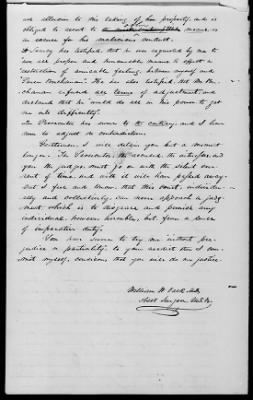 use allusion to this taking of his property, and is
obliged to resort to means
in excuse for this malicious conduct.
Dr Tansey has testified, that he was requested by me to
use all proper and honorable means to effect a
restoration of amicable feeling, between myself and
Hon. He has also testified, that
refused all terms of adjustment, and
declared that he would do all in his power to get
me into difficulty.
The Prosecutor has sworn to the contrary, and I leave
him to adjust the contradiction.
Gentlemen, I will delay you but a moment
longer. The Prosecutor, the accused, the witnesses, and
you the judges, must go on with the silent cur-
rent of time, and with it will have passed away.
But I feel and know, that this court, individu-
ally and collectively, can never approach a judg-
ment, which is to disgrace and punish any
individual, however humble, but from a sense
of imperative duty.
You have sworn to try me without pre-
judice or partiality; to your verdict then I com-
mit myself, confident that you will do me justice.
William H
Asst Surgeon